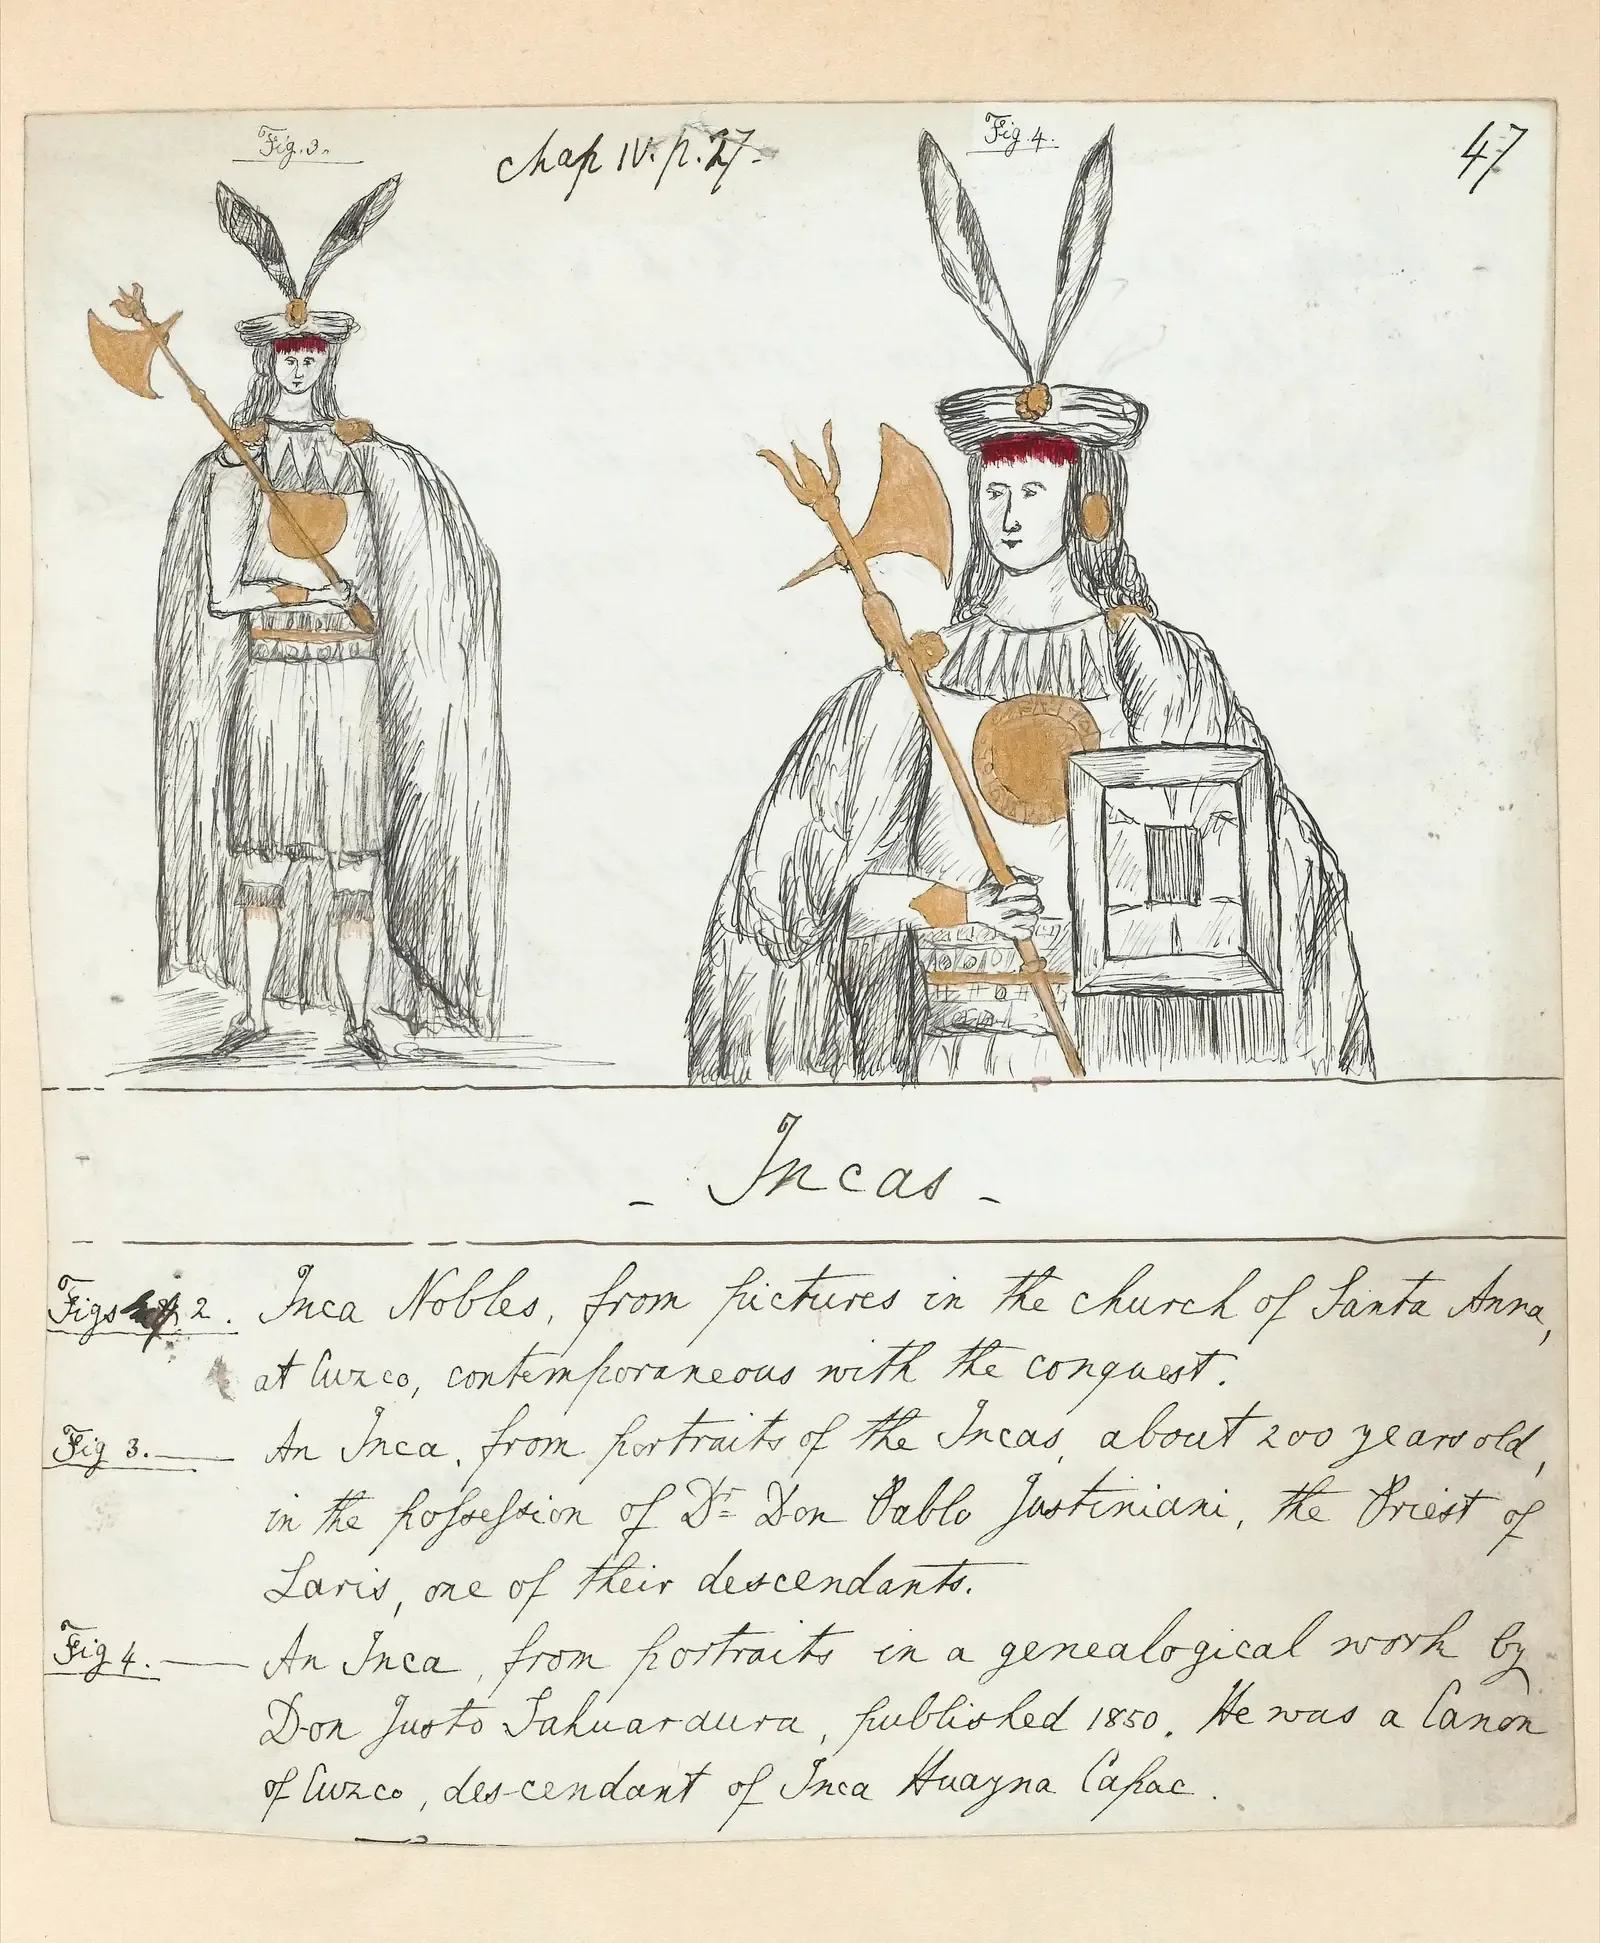 Fig. 3.
Chap IV. p. 27.
Fig 4.
47
- Incas -
Figs 2. Inca Nobles, from pictures in the church of Santa Anna,
at Cuzco, contemporaneous with the conquest.
Fig 3. — An Inca, from portraits of the Incas, about 200 years old,
in the possession of Dr Don Pablo Justiniani, the Priest of
Laris, one of their descendants.
Fig 4. — An Inca, from portraits in a genealogical work by
Don Justo Sahuaraura, published 1850. He was a Canon
of Cuzco, descendant of Inca Huayna Capac.